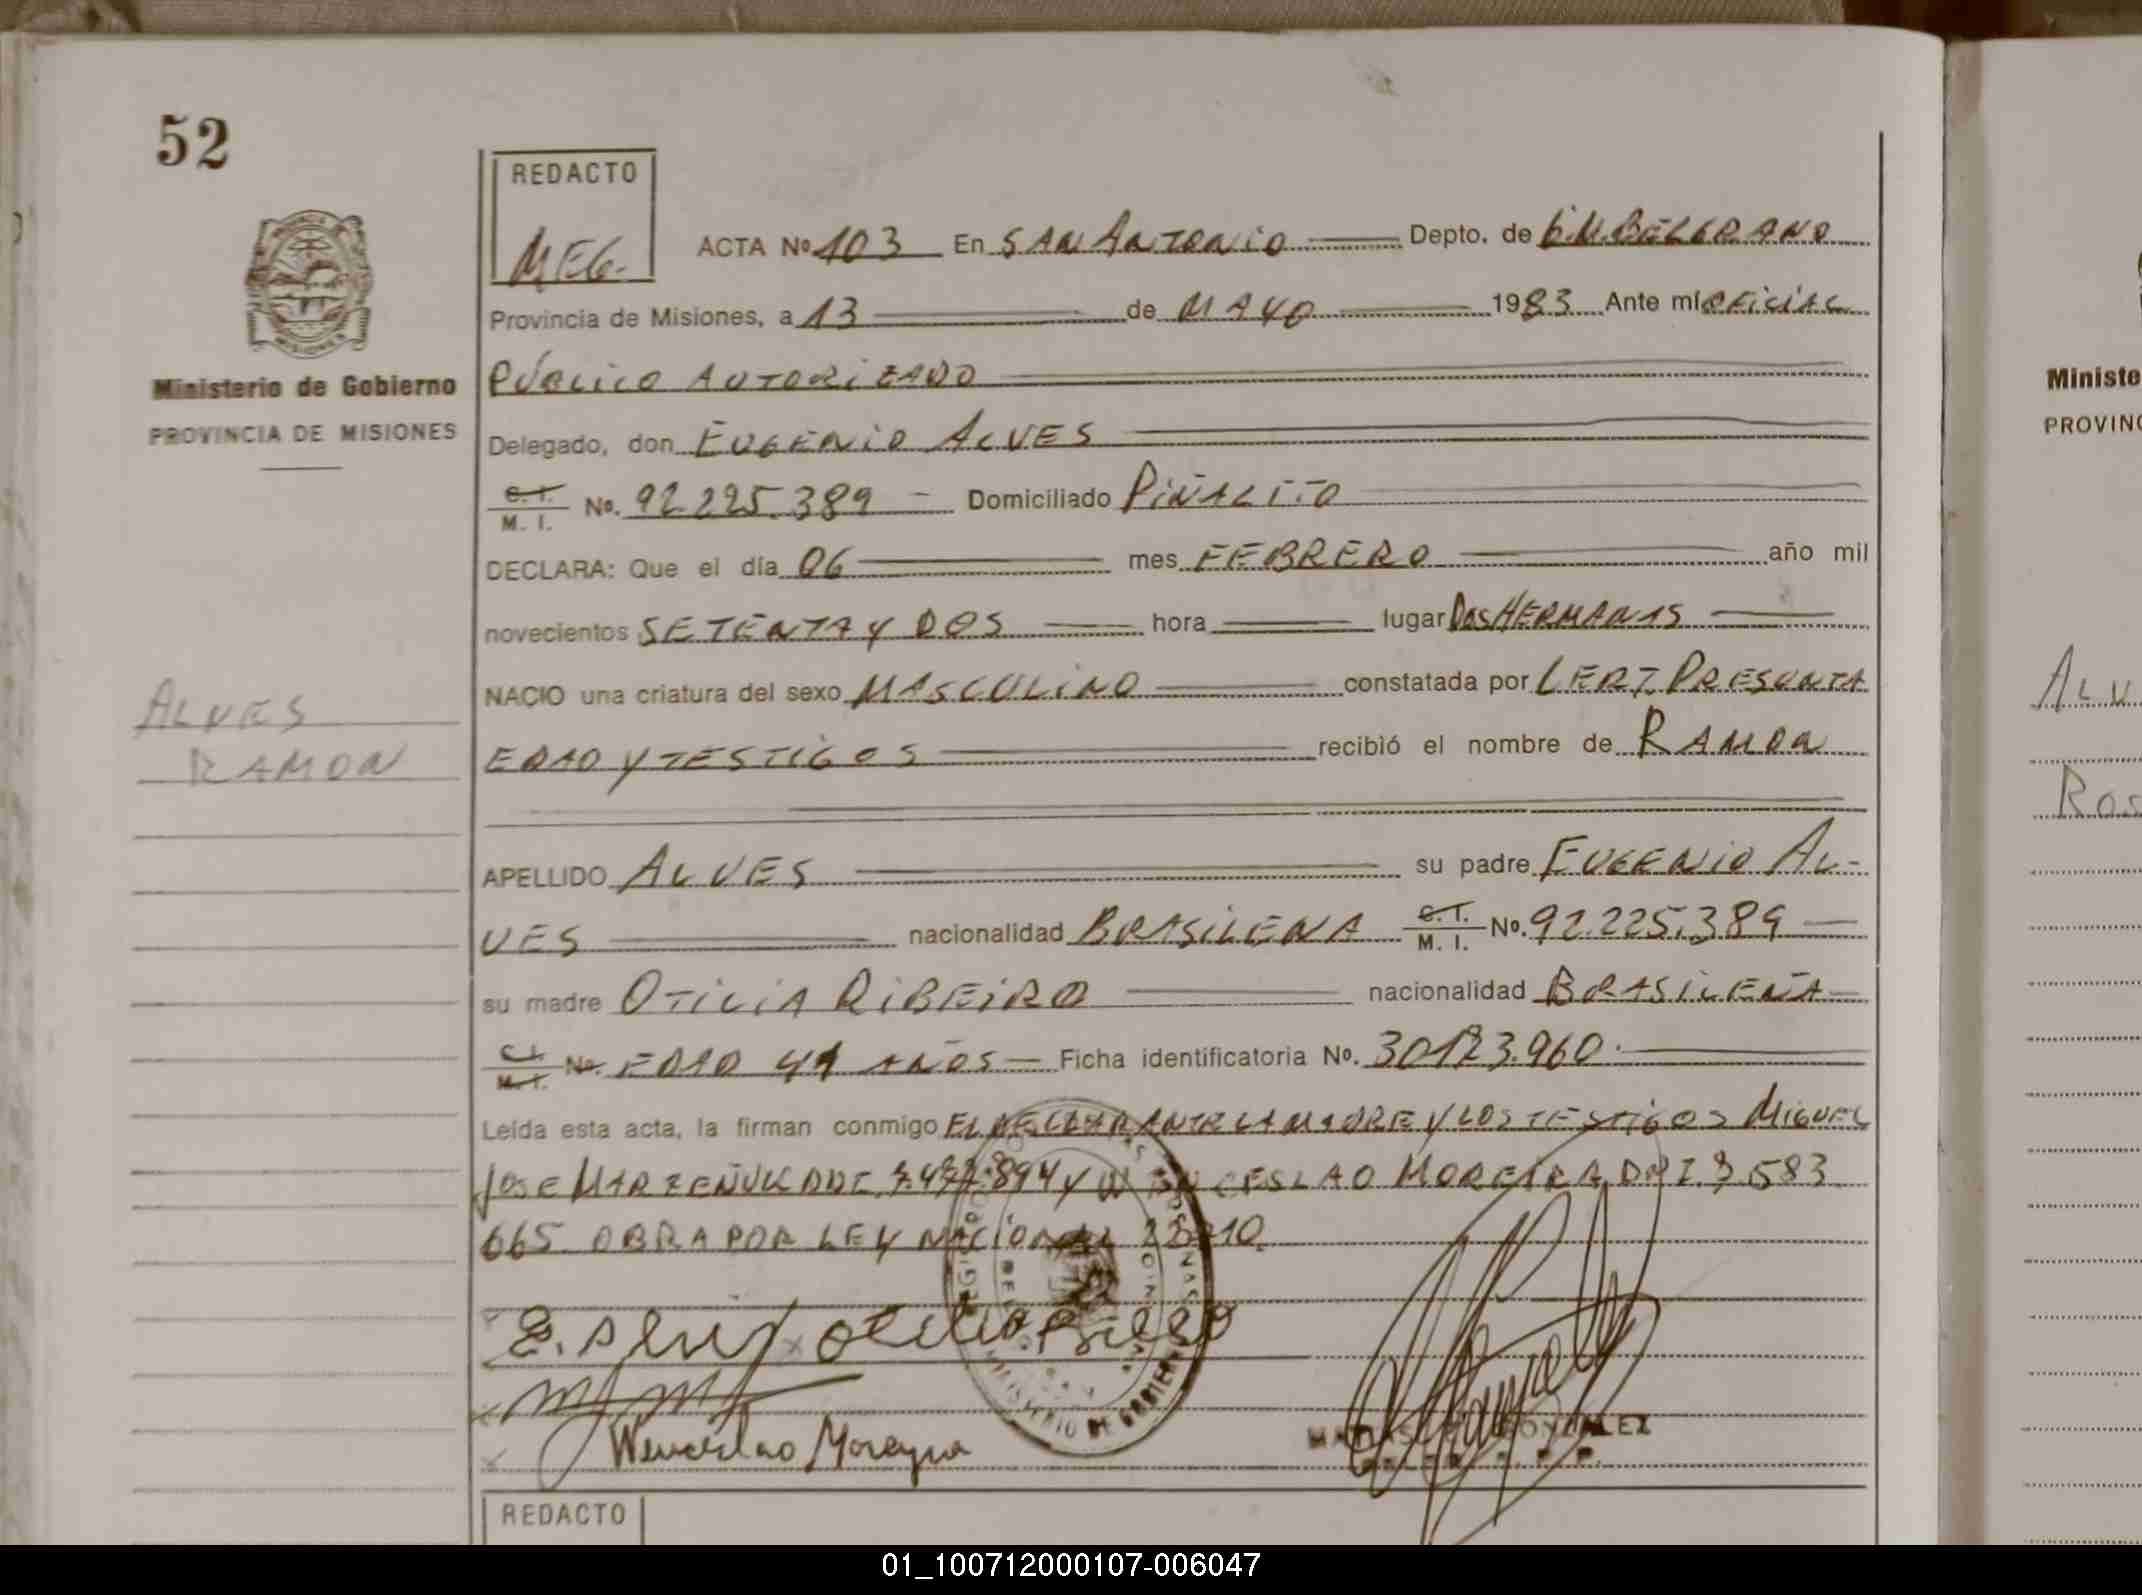 52
REDACTO
MEG.
ACTA Nº 103 En SAN ANTONIO Depto. de G.M. BELGRANO
Provincia de Misiones, a 13 de MAYO 1983 Ante mí OFICIAL
PÚBLICO AUTORIZADO
Ministerio de Gobierno
PROVINCIA DE MISIONES
Delegado, don EUGENIO ALVES
C. I. M. I. No. 92.225.389 - Domiciliado PIÑALITO
DECLARA: Que el día 06 mes FEBRERO año mil
novecientos SETENTA Y DOS hora lugar DOS HERMANAS
NACIO una criatura del sexo MASCULINO constatada por CERT. PRESUNTA
EDAD Y TESTIGOS recibió el nombre de RAMON
ALVES
RAMON
APELLIDO ALVES su padre EUGENIO AL-
VES nacionalidad BRASILENA C. I. M. I. No. 92.225.389
su madre OTILIA RIBEIRO nacionalidad BRASILEÑA
C. I. M. I. No. EDAD 41 AÑOS Ficha identificatoria No. 30.123.960.
Leída esta acta, la firman conmigo EL DECLARANTE LA MADRE Y LOS TESTIGOS MIGUEL
JOSE Y WENCESLAO MOREIRA DNI. 583
665 OBRA POR LEY NACIONAL
E. Alves Otilia
Wenceslao Moreyra
MATIAS GONZALEZ
MINISTERIO DE GOBIERNO
REDACTO
Ministe
PROVINC
ALV
ROS
01_100712000107-006047